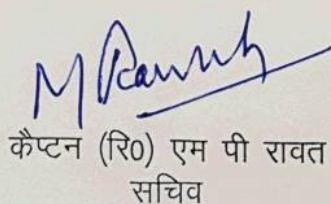 M Rawat
कैप्टन (रि0) एम पी रावत
सचिव